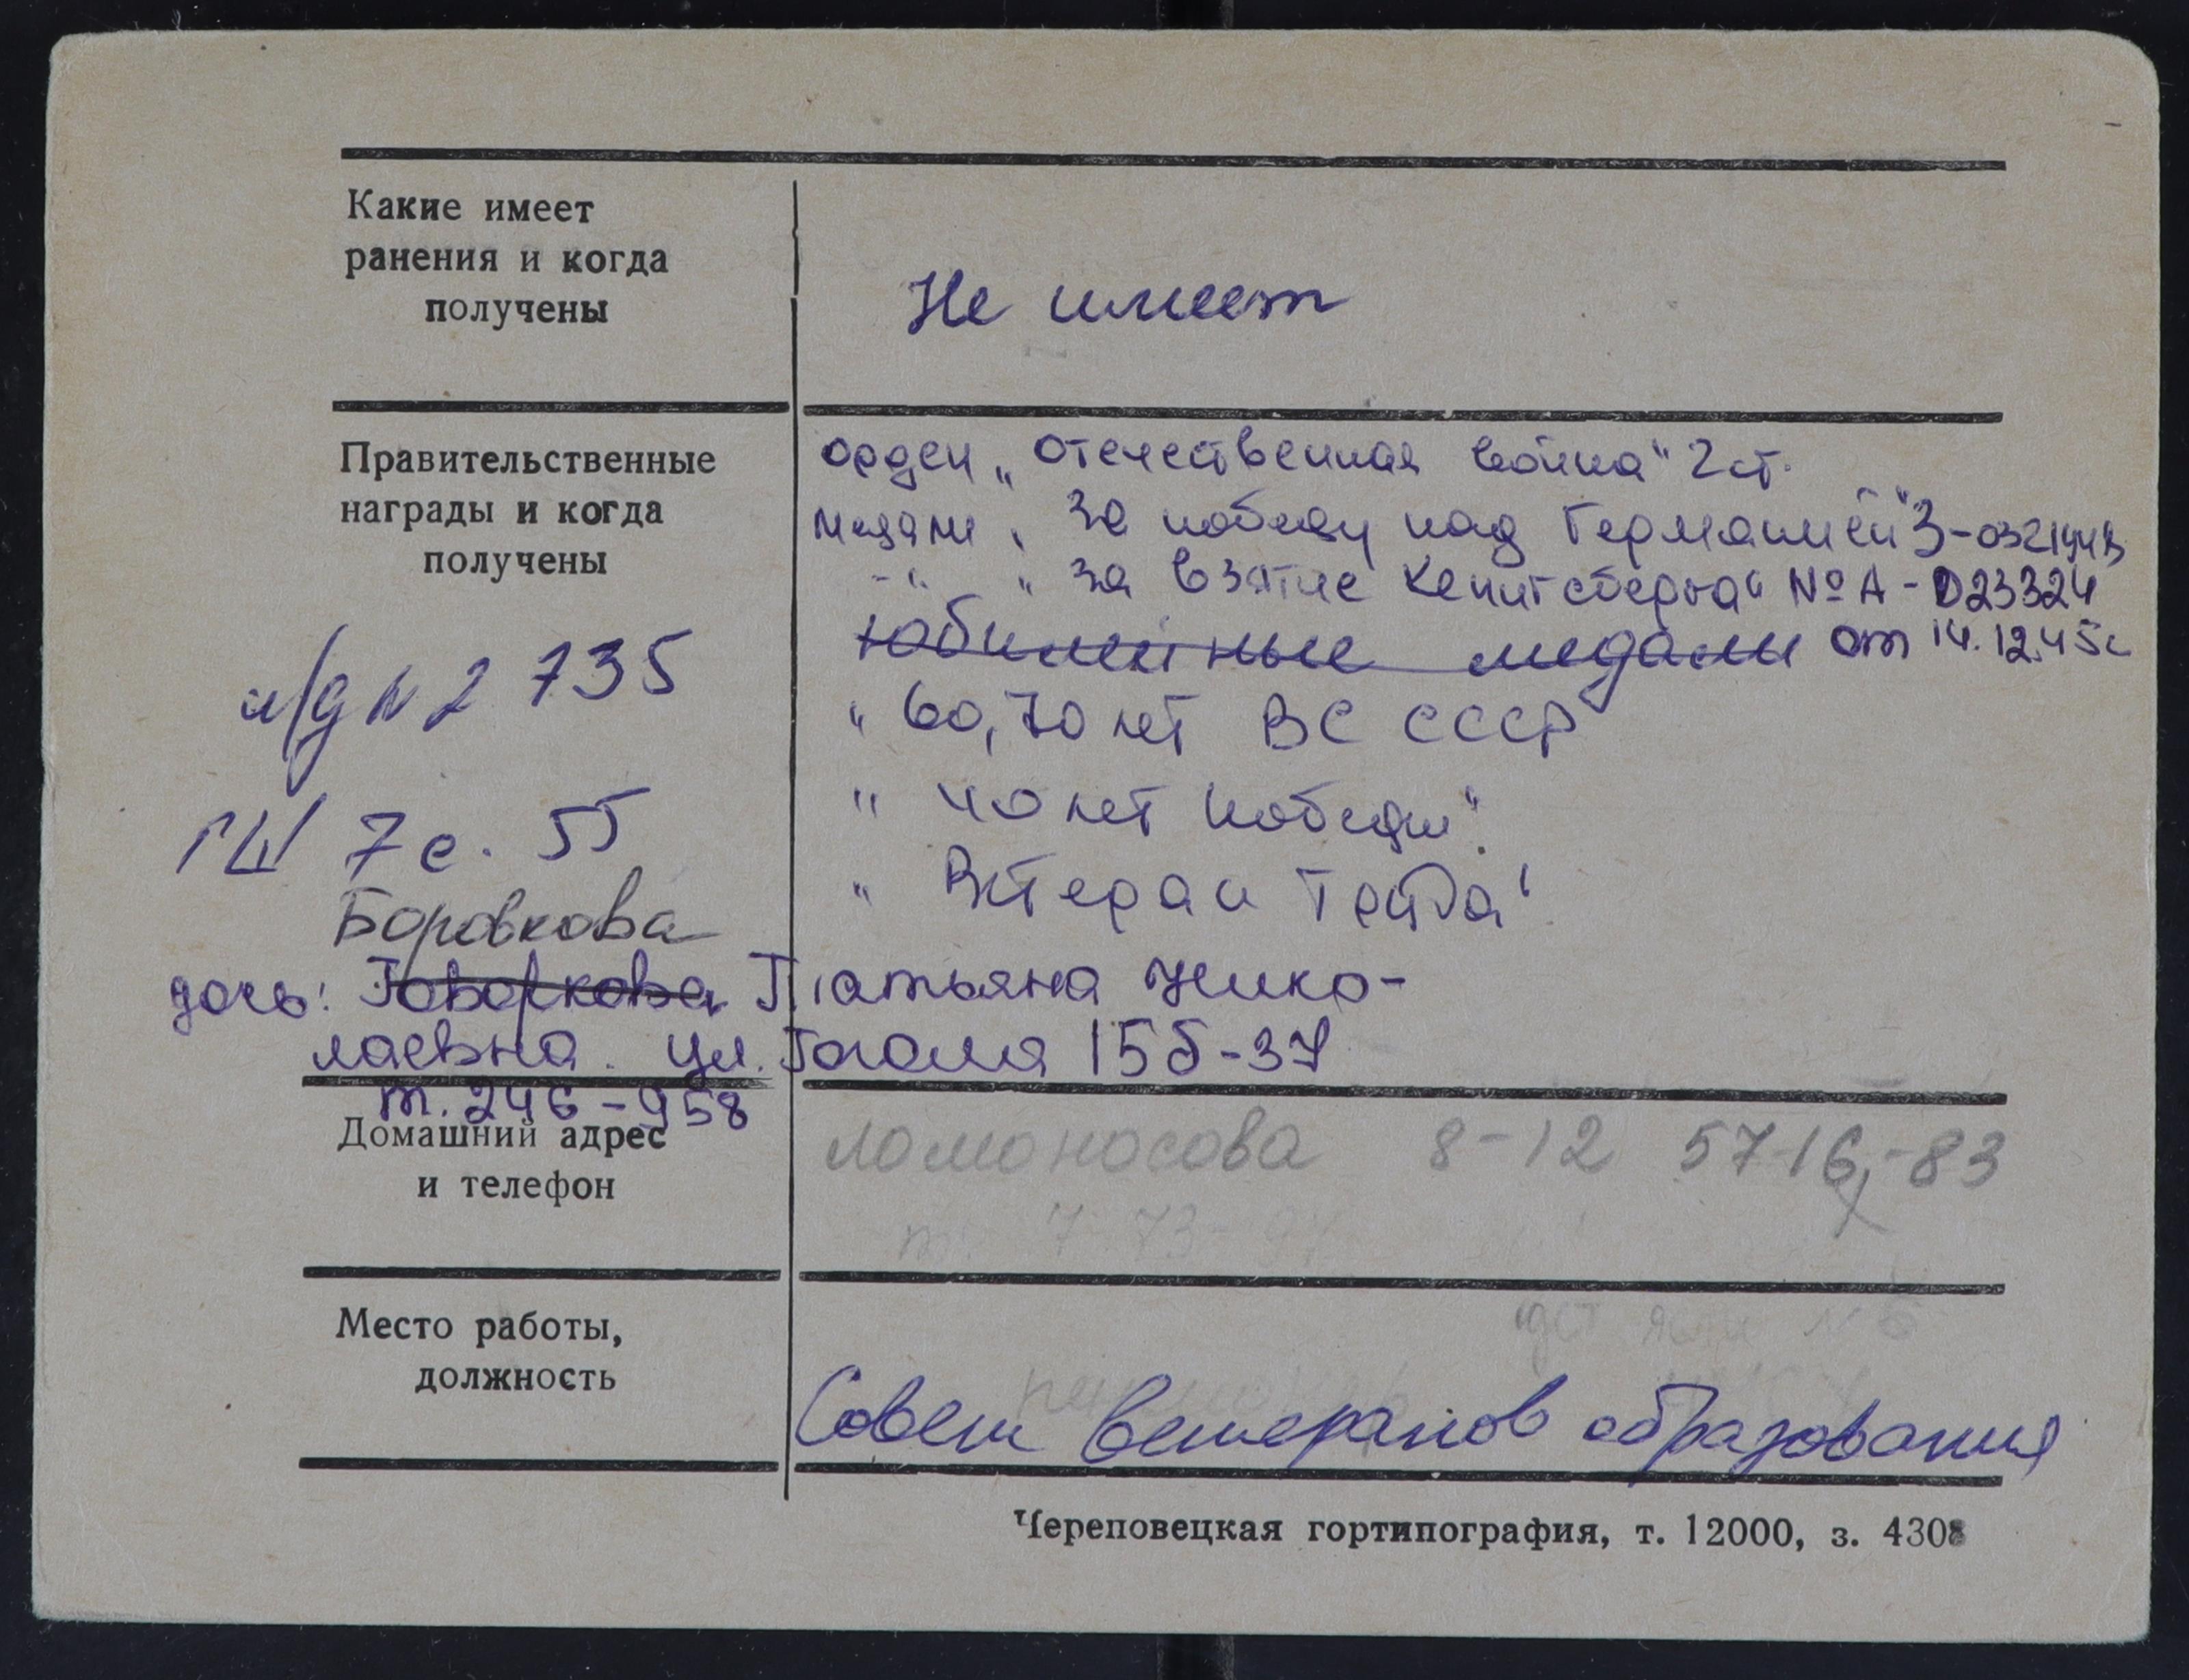 Какие имеет
ранения и когда
получены
Не имеет
Правительственные
награды и когда
получены
орден „Отечественная война" 2 ст.
медали „За победу над Германией" З-0321948
-"- „За взятие Кенигсберга" № А-023324
юбилейные медали от 14.12.45г
" 60, 70 лет ВС СССР
" 40 лет Победы".
" Ветеран Труда"
и/д № 2735
ГШ 7е. 55
Боровкова
дочь: Говоркова Татьяна Нико-
лаевна. ул. Гоголя 15б-37
т. 246-958
Домашний адрес
и телефон
Ломоносова 8-12 57-16-83
т. 7-73-
Место работы,
должность
Совет ветеранов образования
Череповецкая гортипография, т. 12000, з. 4308